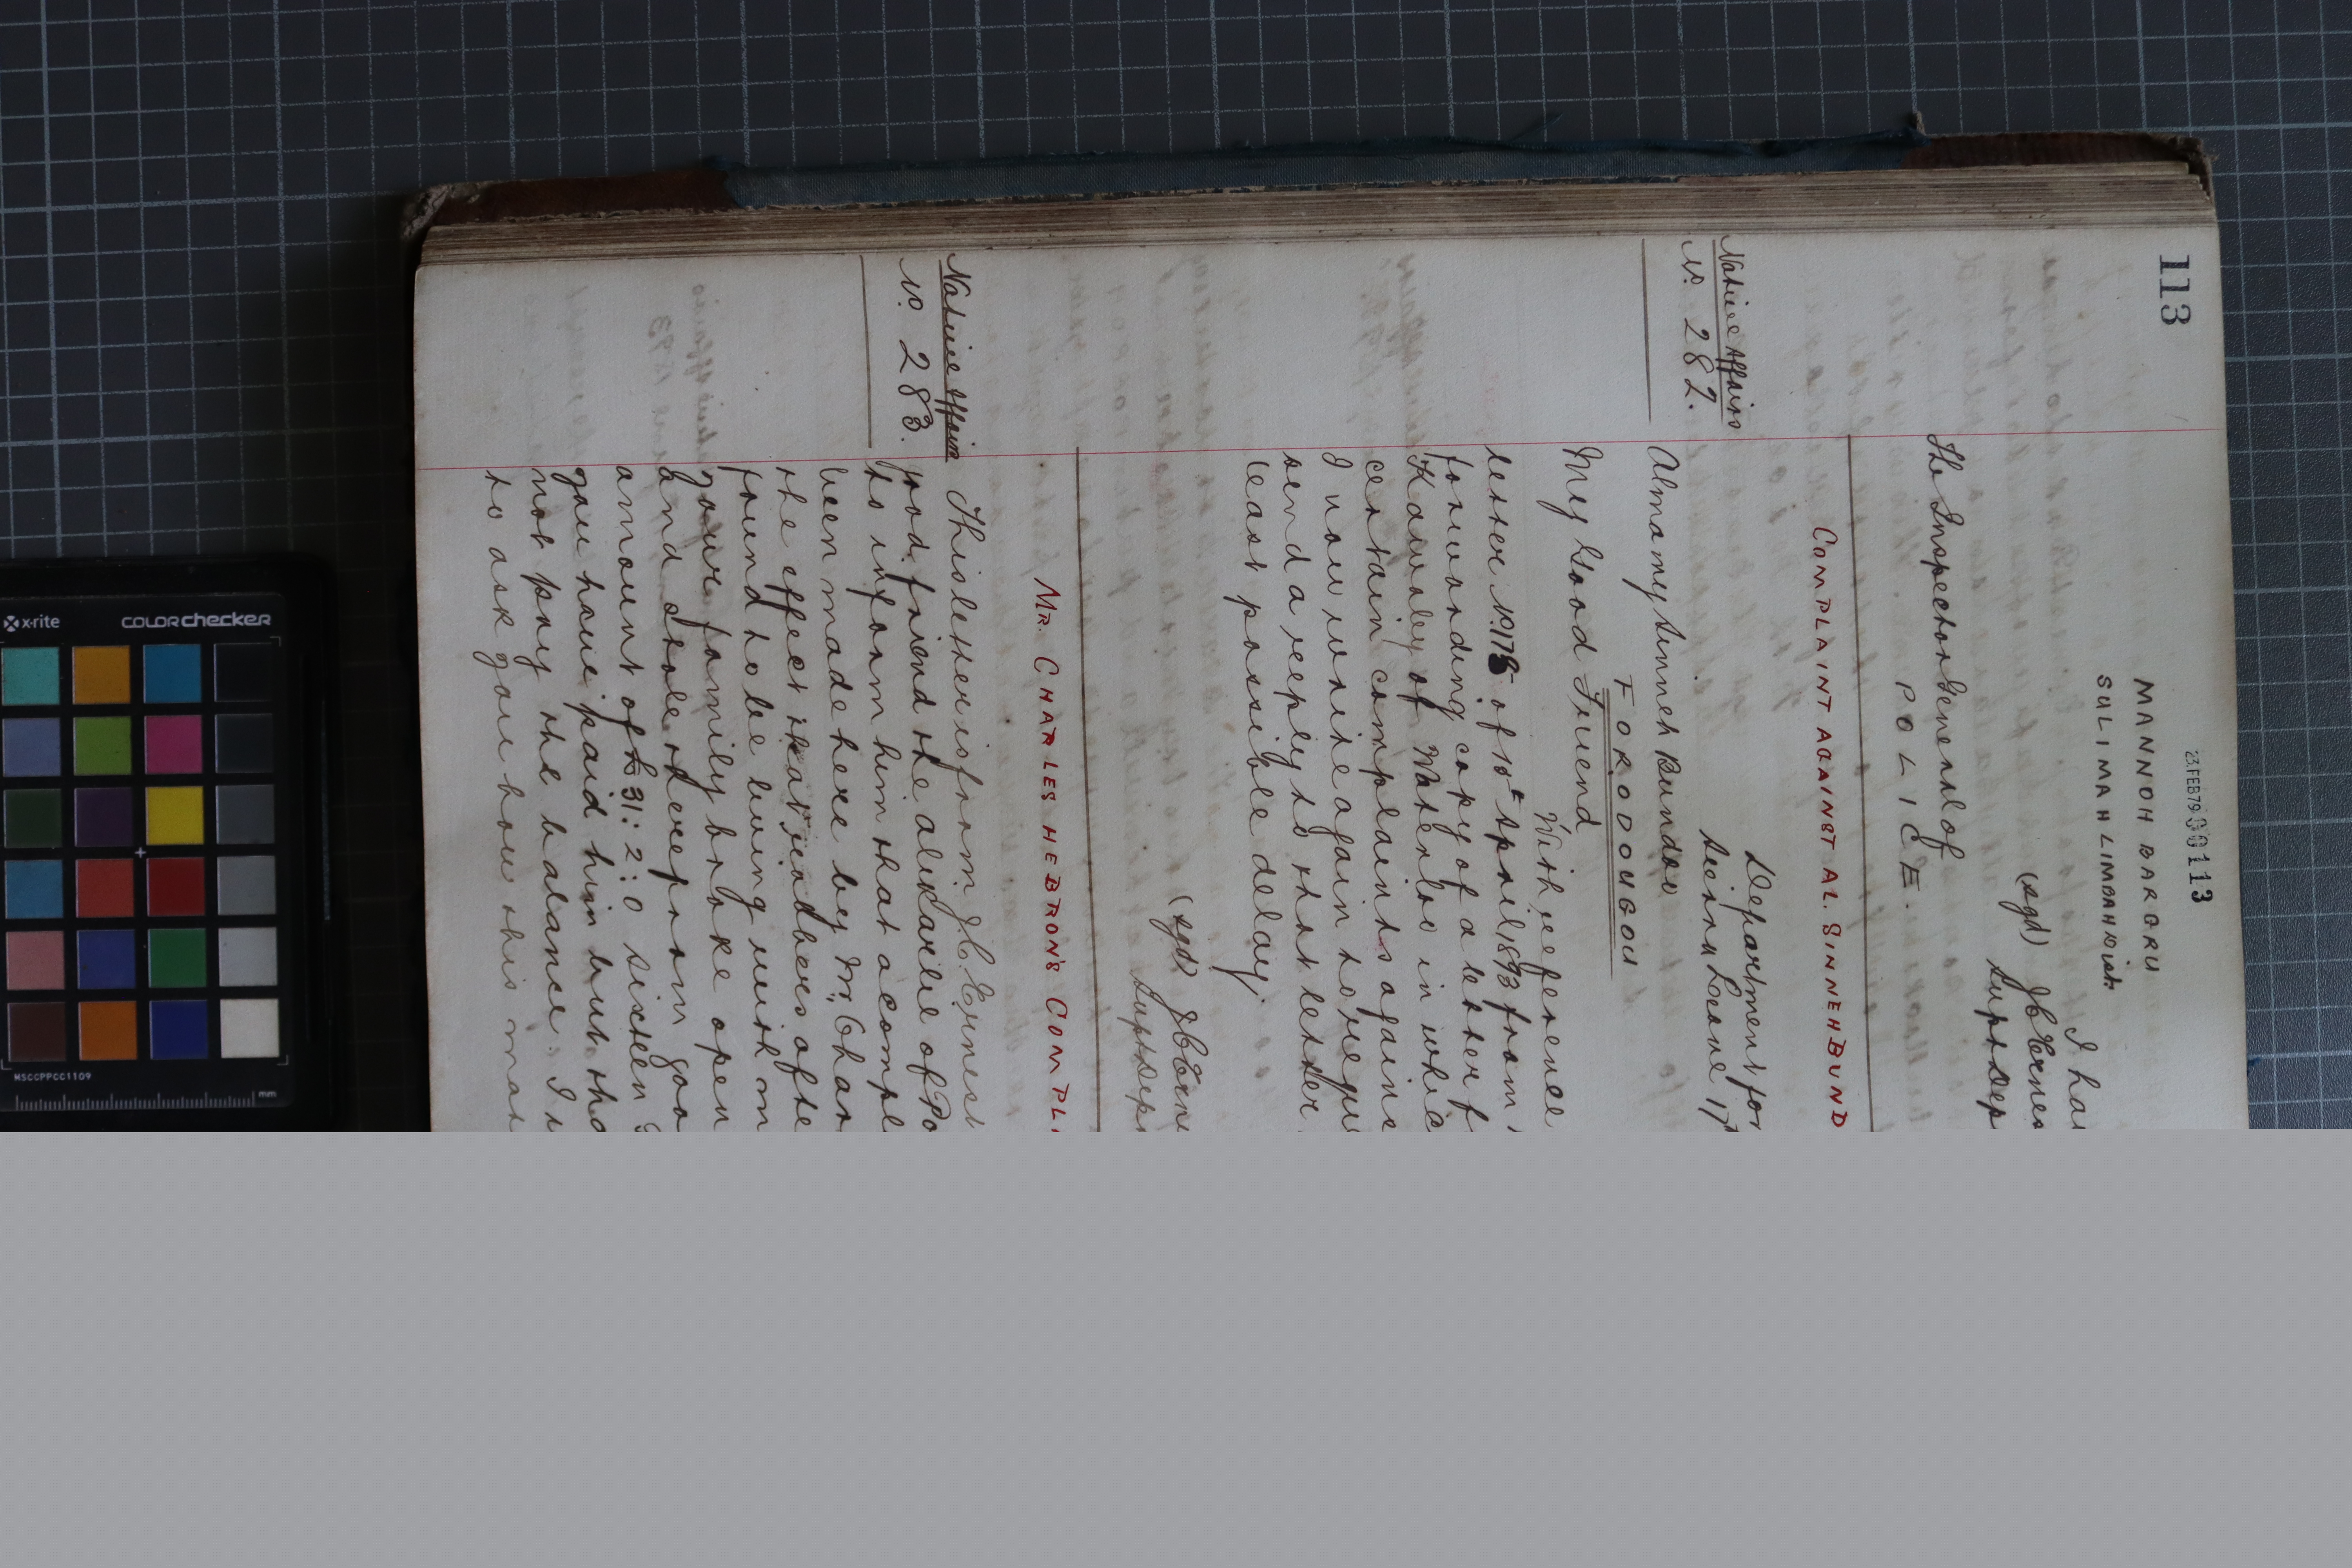 113
23.FEB79 000113
MANNOH BARGRU
SULIMAH LIMBAH Dist.
I ha
(sgd) J C Ernes
Supt Dep
The Inspector General of
POLICE.
COMPLAINT AGAINST AL. SINNEH BUND
Native Affairs
No. 282.
Department for
Sierra Leone 17th
Almamy Sinneh Bundoo
FORODOUGOU
My Good Friend
With reference
letter No. 178 of 10th April 1893 from
forwarding copy of a letter f
Kawaley of Waterloo in whic
certain complaints agains
I now write again to requ
send a reply to that letter
least possible delay.
(sgd) J C Erne
Supt Dep
MR. CHARLES HEBRON'S COMPL
Native Affairs
No. 283.
This letter is from J. C. Ernest
good friend the alikarlie of Po
to inform him that a compl
been made here by Mr. Char
the effect that
found to be living with
your family broke open
and stole therefrom goo
amount of £31:2:0 sixteen
you have paid him but
not pay the balance. I
to ask you how this mat
x-rite
COLORchecker
MSCCPPCC1109
mm